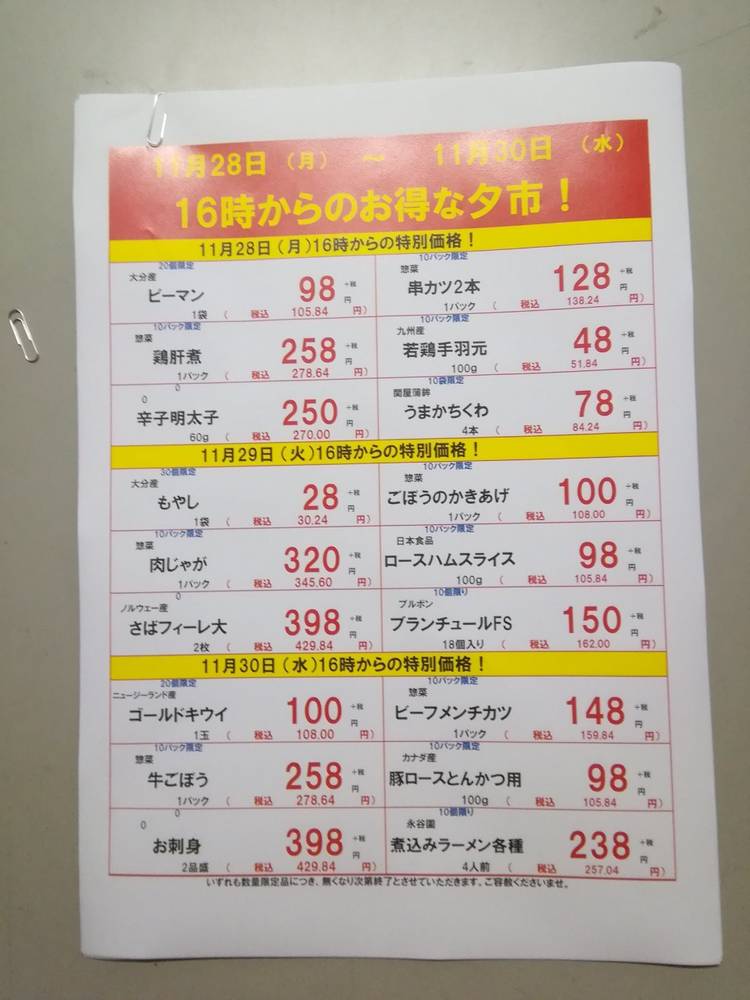 11月28日 (月) ～ 11月30日 (水)
16時からのお得な夕市！
11月28日(月)16時からの特別価格！
20個限定
大分産
ピーマン
98 +税 円
1袋 ( 税込 105.84 円)
10パック限定
惣菜
串カツ2本
128 +税 円
1パック ( 税込 138.24 円)
10パック限定
惣菜
鶏肝煮
258 +税 円
1パック ( 税込 278.64 円)
10パック限定
九州産
若鶏手羽元
48 +税 円
100g ( 税込 51.84 円)
0
0
辛子明太子
250 +税 円
60g ( 税込 270.00 円)
10袋限定
関屋蒲鉾
うまかちくわ
78 +税 円
4本 ( 税込 84.24 円)
11月29日(火)16時からの特別価格！
30個限定
大分産
もやし
28 +税 円
1袋 ( 税込 30.24 円)
10パック限定
惣菜
ごぼうのかきあげ
100 +税 円
1パック ( 税込 108.00 円)
10パック限定
惣菜
肉じゃが
320 +税 円
1パック ( 税込 345.60 円)
10パック限定
日本食品
ロースハムスライス
98 +税 円
100g ( 税込 105.84 円)
0
ノルウェー産
さばフィーレ大
398 +税 円
2枚 ( 税込 429.84 円)
10個限り
ブルボン
ブランチュールFS
150 +税 円
18個入り ( 税込 162.00 円)
11月30日(水)16時からの特別価格！
20個限定
ニュージーランド産
ゴールドキウイ
100 +税 円
1玉 ( 税込 108.00 円)
10パック限定
惣菜
ビーフメンチカツ
148 +税 円
1パック ( 税込 159.84 円)
10パック限定
惣菜
牛ごぼう
258 +税 円
1パック ( 税込 278.64 円)
10パック限定
カナダ産
豚ロースとんかつ用
98 +税 円
100g ( 税込 105.84 円)
0
0
お刺身
398 +税 円
2品盛 ( 税込 429.84 円)
10個限り
永谷園
煮込みラーメン各種
238 +税 円
4人前 ( 税込 257.04 円)
いずれも数量限定品につき、無くなり次第終了とさせていただきます、ご容赦くださいませ。